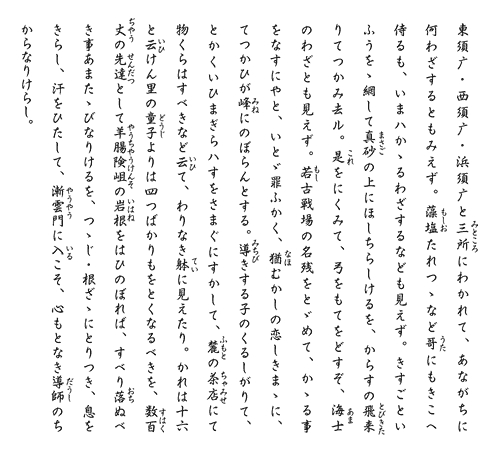 東須广・西須广・浜須广と三所にわかれて、あながちに
何わざするともみえず。藻塩たれつゝなど哥にもきこへ
侍るも、いまハかゝるわざするなども見えず。きすごとい
ふうをゝ網して真砂の上にほしちらしけるを、からすの飛来
りてつかみ去ル。是をにくみて、弓をもてをどすぞ、海士
のわざとも見えず。若古戦場の名残をとゞめて、かゝる事
をなすにやと、いとゞ罪ふかく、猶むかしの恋しきまゝに、
てつかひが峰にのぼらんとする。導きする子のくるしがりて、
とかくいひまぎらハすをさまぐにすかして、麓の茶店にて
物くらはすべきなど云て、わりなき躰に見えたり。かれは十六
と云けん里の童子よりは四つばかりもをとくなるべきを、数百
丈の先達として羊腸険岨の岩根をはひのぼれば、すべり落ぬべ
き事あまたゝびなりけるを、つゝじ・根ざゝにとりつき、息を
きらし、汗をひたして、漸雲門に入こそ、心もとなき導師のち
からなりけらし。